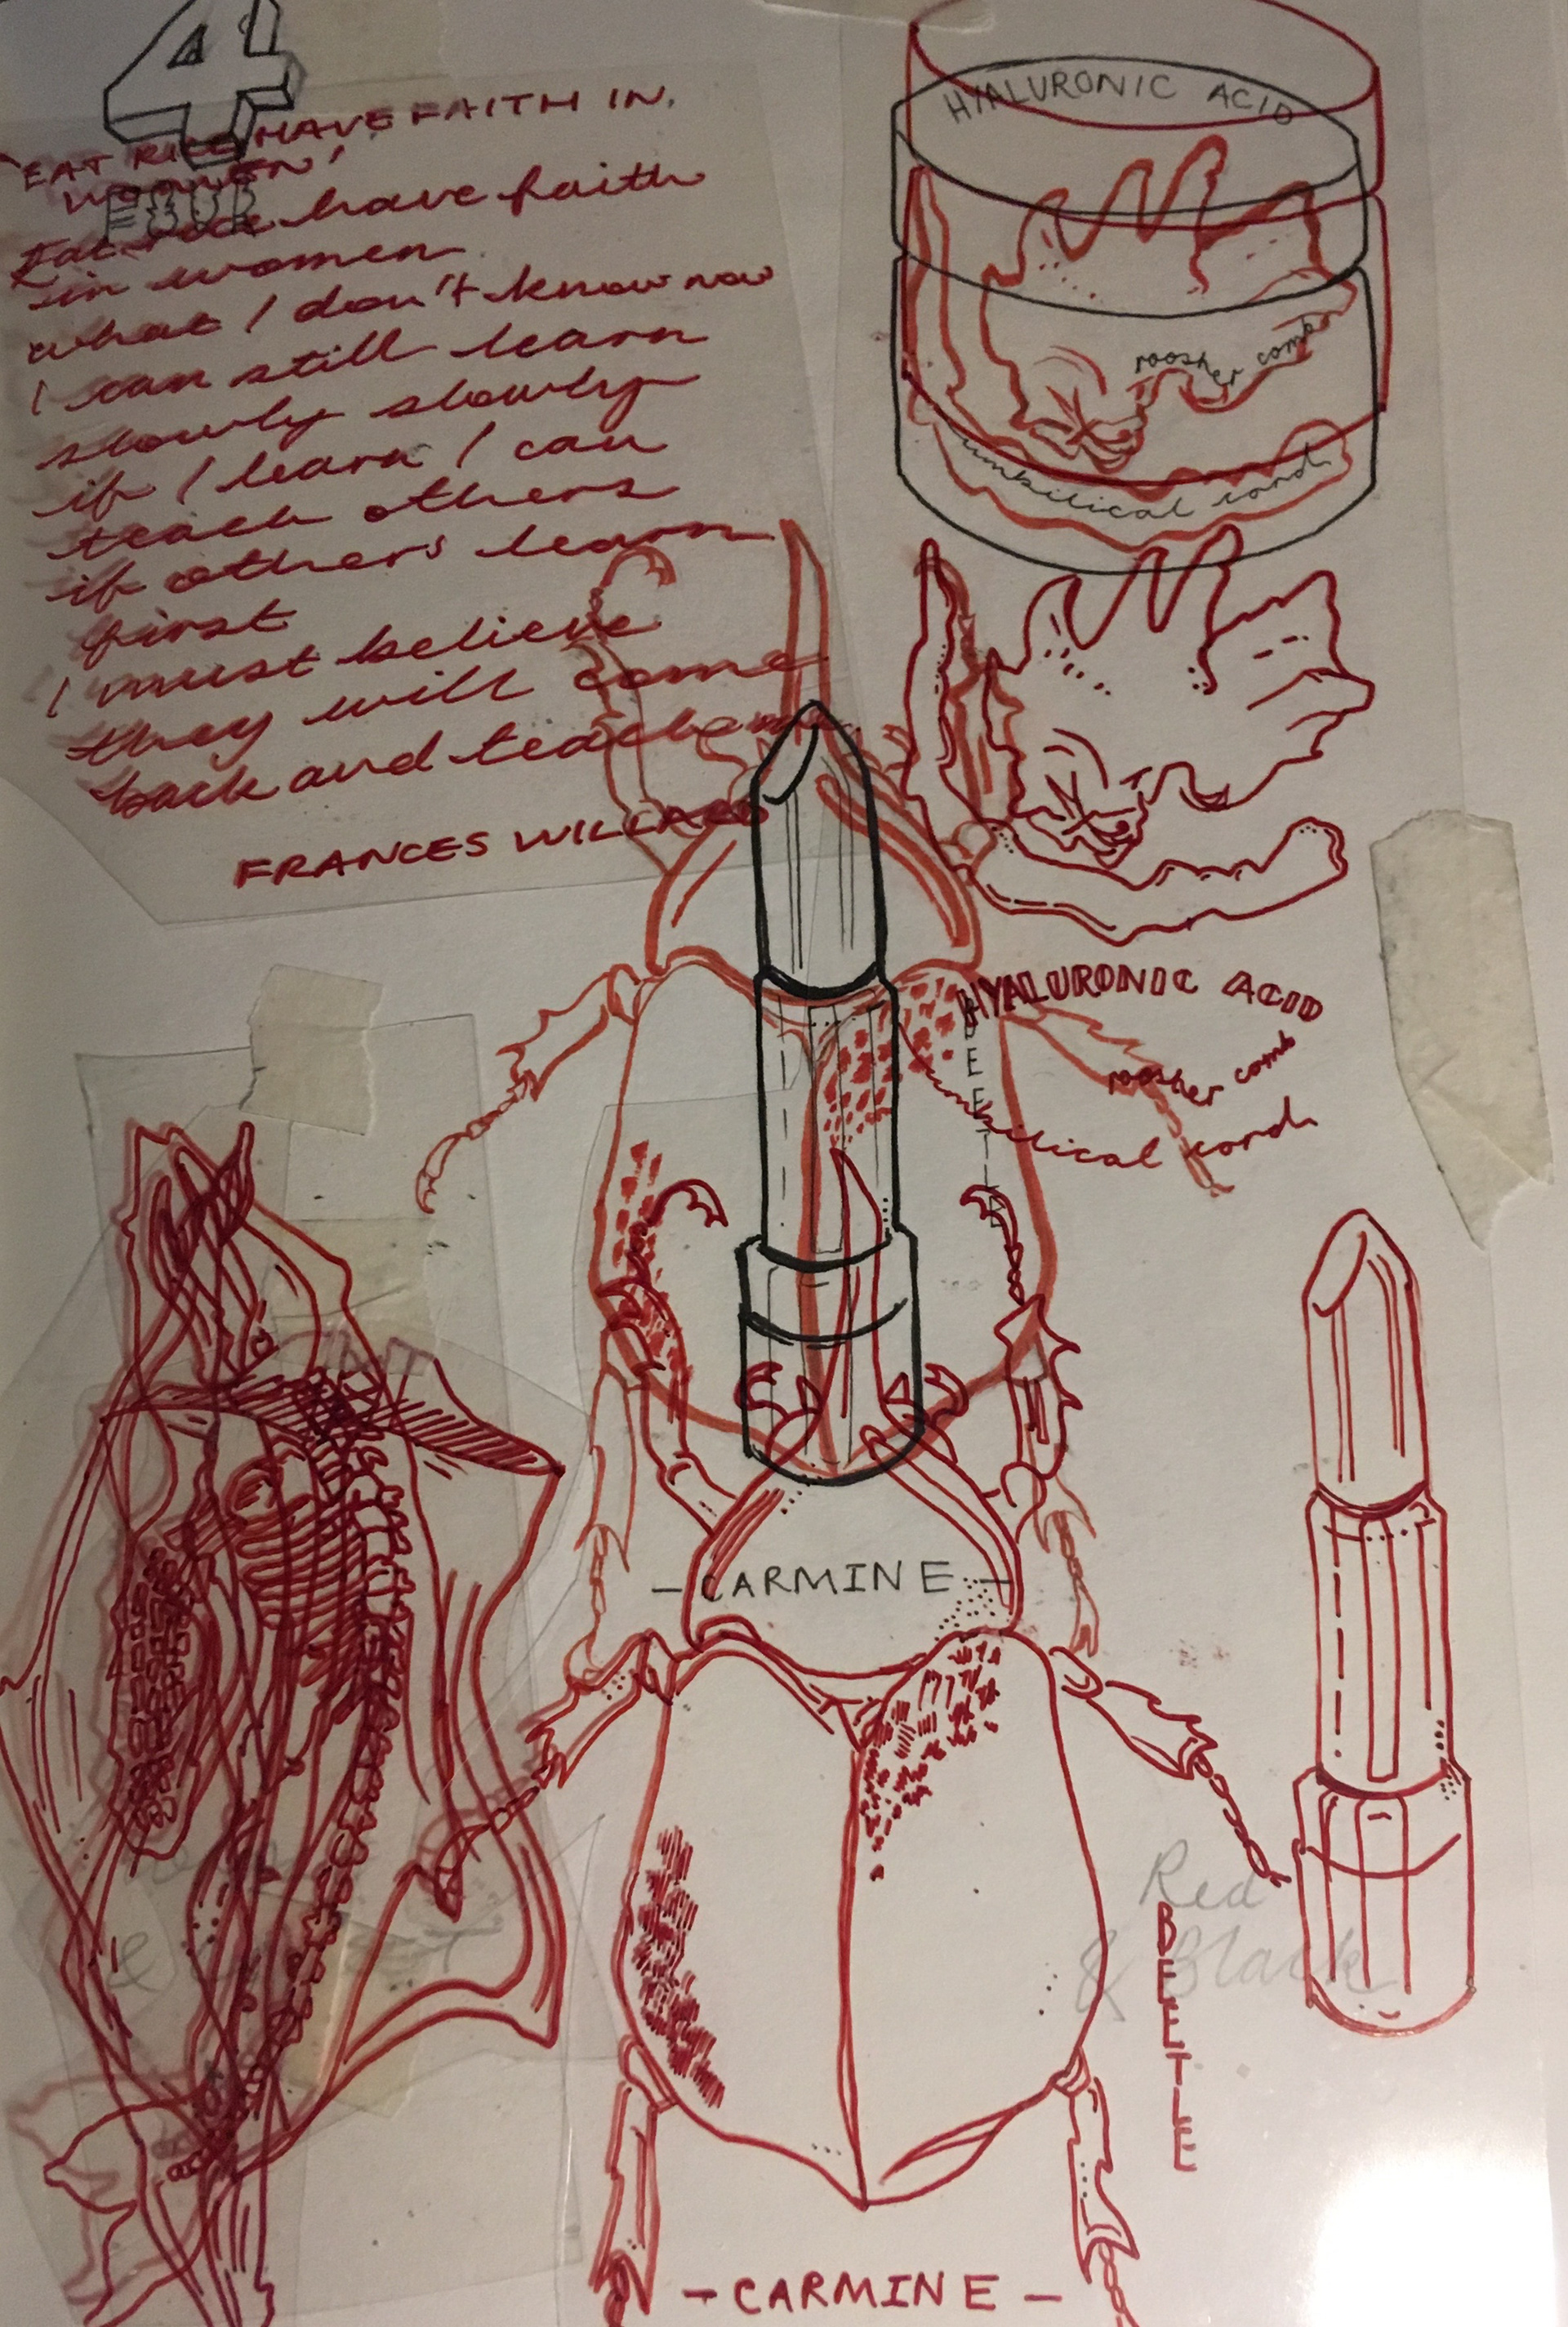 4
FOUR
'EAT RICE HAVE FAITH IN
WOMEN'
Eat rice have faith
in women
what I don't know now
I can still learn
slowly slowly
if I learn I can
teach others
if others learn
first
I must believe
they will come
back and teach me
FRANCES WILLARD
HYALURONIC ACID
rooster comb
umbilical cord
HYALURONIC ACID
rooster comb
umbilical cord
BEETLE
- CARMINE -
Red
& Black
BEETLE
- CARMINE -